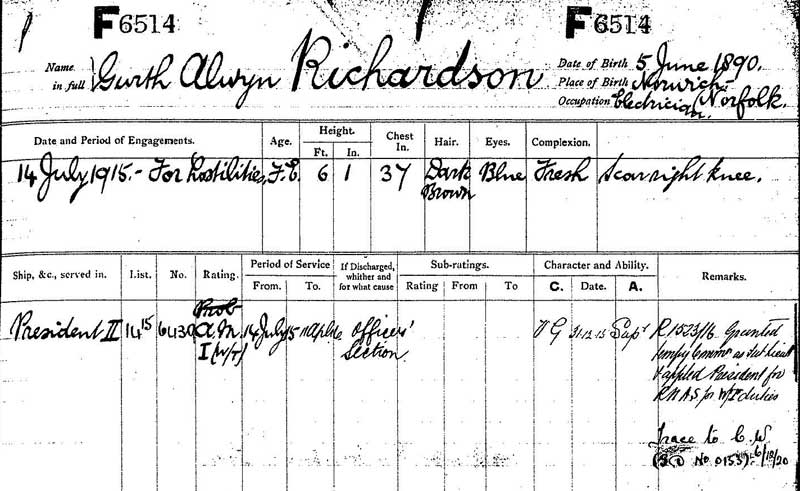 F6514 F6514
Name in full Gurth Alwyn Richardson
Date of Birth 5 June 1890.
Place of Birth Norwich
Occupation Electrician. (Norfolk.
Date and Period of Engagements. Age. Height. Ft. In. Chest In. Hair. Eyes. Complexion.
14 July 1915. - For hostilities, F.E. 6 1 37 Dark Brown Blue Fresh Scar right knee.
Ship, &c., served in. List. No. Rating. Period of Service From. To. If Discharged, whither and for what cause Sub-ratings. Rating From To Character and Ability. C. Date. A. Remarks.
Prob
President II 14 15 6430 A.M. 14 July 15 Officers' VG 31-12-15 Sup R 1523/16 Granted
I (W/T) Section. tempy Commn as Sub Lieut
& appted President for
R.N.A.S. for W/T duties
Trace to C.W.
No 0153) 6/10/20